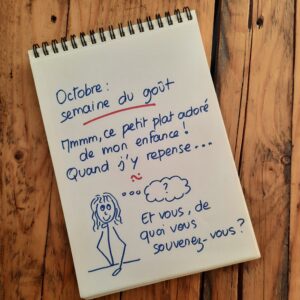 Octobre :
semaine du goût
Mmmm, ce petit plat adoré
de mon enfance !
Quand j'y repense...
?
Et vous, de
quoi vous
souvenez-vous ?